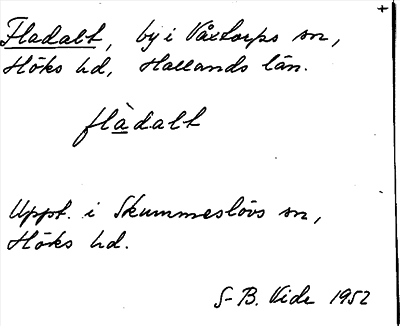 Fladalt, by i Våxtorps sn,
Höks hd, Hallands län.
flàdalt
Uppt. i Skummeslövs sn,
Höks hd.
S-B. Vide 1952